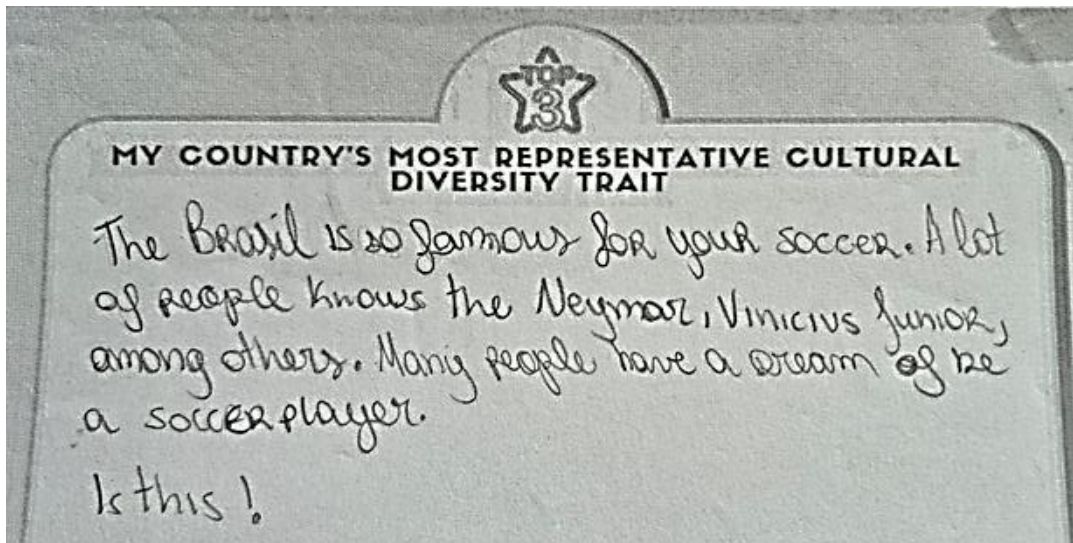 TOP
3
MY COUNTRY'S MOST REPRESENTATIVE CULTURAL
DIVERSITY TRAIT
The Brasil is so famous for your soccer. A lot
of people knows the Neymar, Vinicius Junior,
among others. Many people have a dream of be
a soccer player.
Is this!